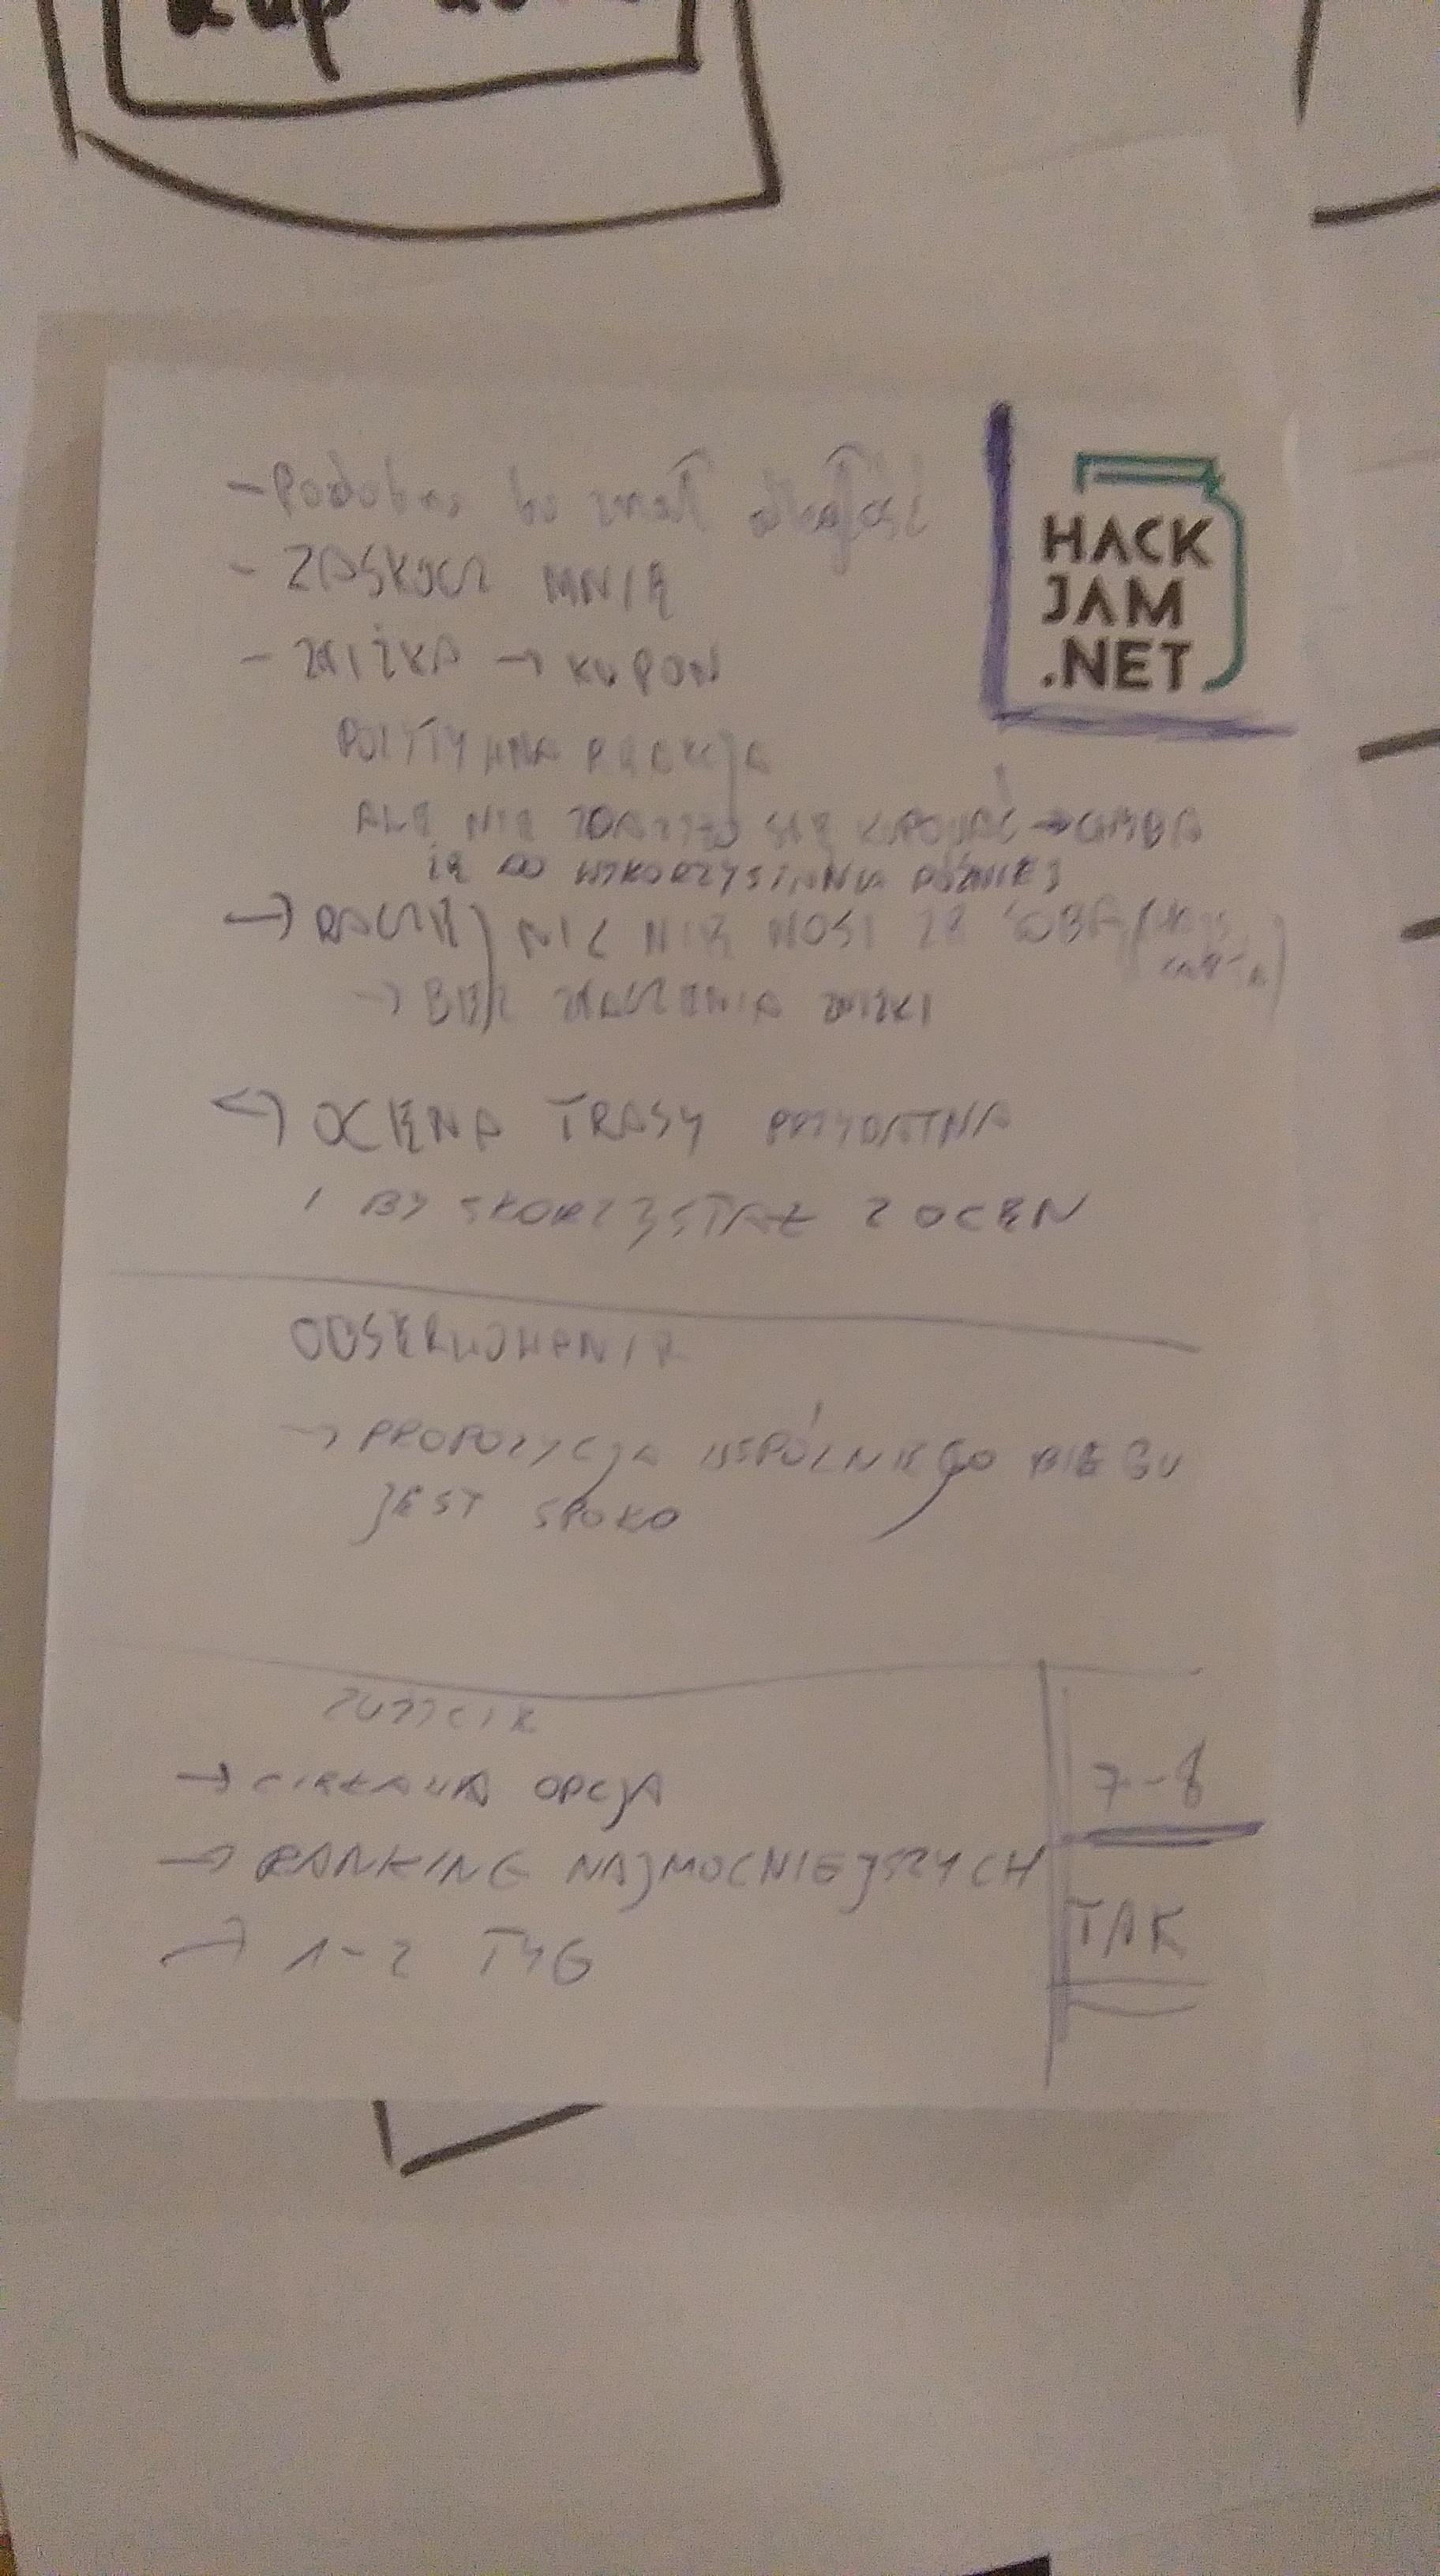 kup
HACK
JAM
.NET
- Podoba bo znał
- ZASKOCZ MNIE
- ZNIŻKA → KUPON
POZYTYWNA REAKCJA
ALE NIE ZDARZYŁO SIĘ KUPOWAĆ →
DO WYKORZYSTANIA PÓŹNIEJ
→ RACZEJ NIC NIE NOSI ZE SOBĄ
→ BEZ ZNACZENIA ZNIŻKI
OCENA TRASY PRZYDATNA
I BY SKORZYSTAŁ Z OCEN
OBSERWOWANIE
→ PROPOZYCJA WSPÓLNEGO BIEGU
JEST SPOKO
→ CIEKAWA OPCJA
→ RANKING NAJMOCNIEJSZYCH
→ 1-2 TYG
7-8
TAK